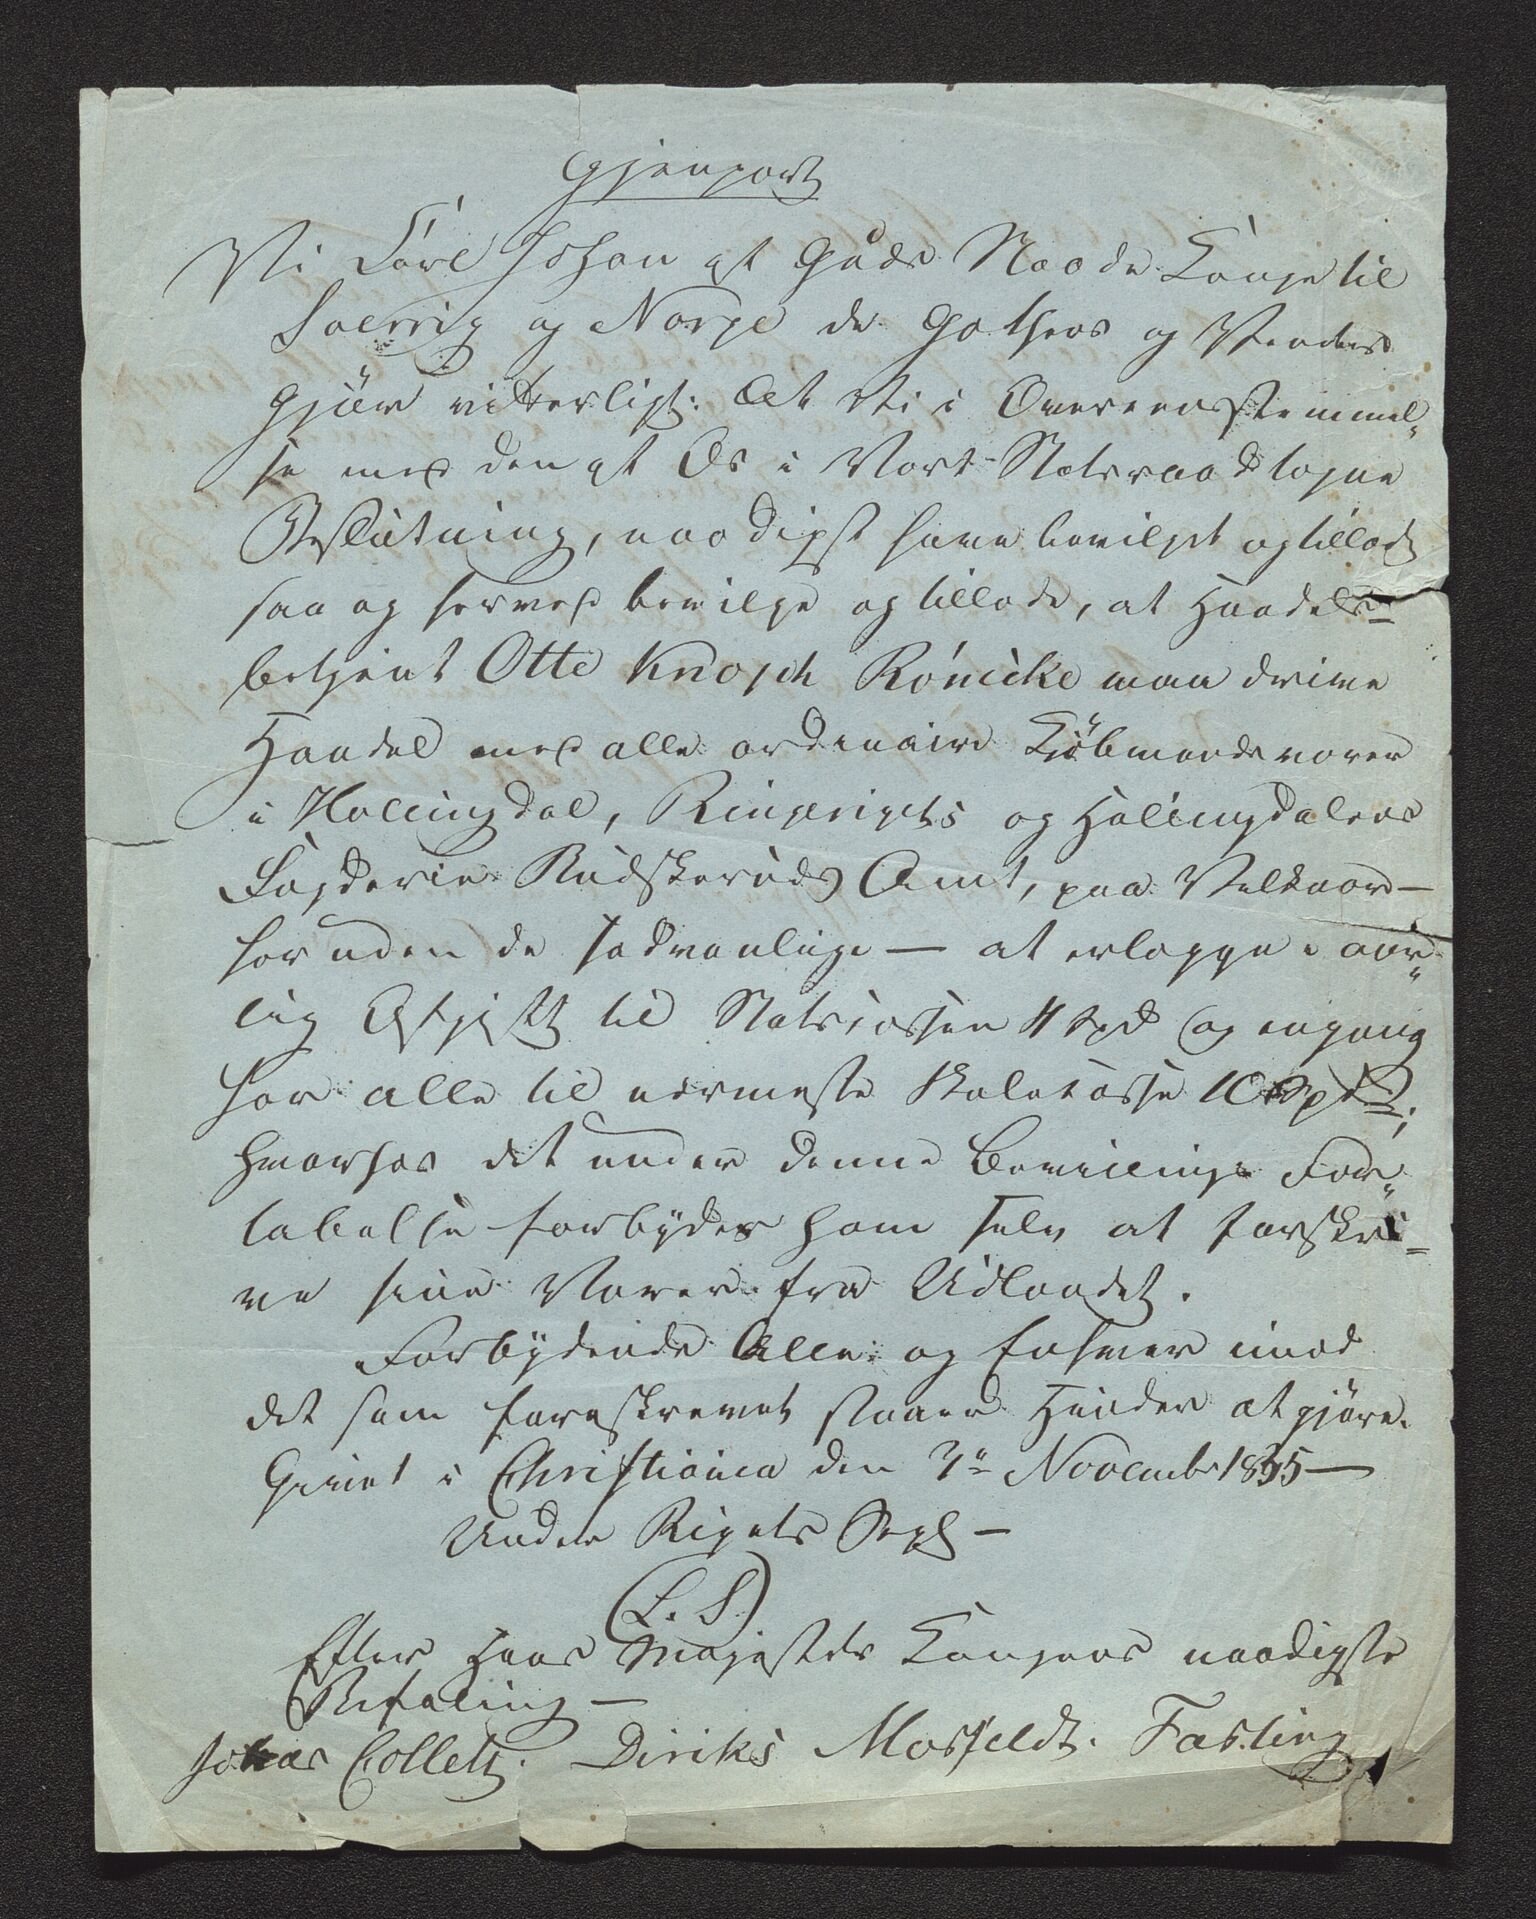 Gjenpart
Vi Carl Johan af Guds Naade Konge til
Sverrig og Norge de Gothers og Venders
Gjøre vitterligt: At Vi i Overeensstemmel-
se med den af Os i Vort Statsraad tagne
Beslutning, naadigst have bevilget og tilladt
saa og herved bevilge og tillade, at Handels-
betjent Otte Knoph Rönicke maa drive
Handel med alle ordinaire Kjöbmandsvarer
i Hallingdal, Ringerigets og Hallingdalens
Fogderie Budskeruds Amt, paa Velkaar —
foruden de sedvanlige — at erlægge i aar-
lig Afgift til Statscassen 4 Spd og engang
for alle til nærmeste Skolekasse 10 Spd;
hvorhos det under denne Bevillings For-
tabelse forbydes ham selv at forskri-
ve sine Varer fra Udlandet.
Forbydende Alle og Enhver imod
det som foreskrevet staaer Hinder at gjöre.
Givet i Christiania den 7de November 1835 —
Under Rigets Segl —
(L. S.)
Efter Hans Majestæts Kongens naadigste
Befaling —
Jonas Collett. Diriks Mosfeldt. Fasting